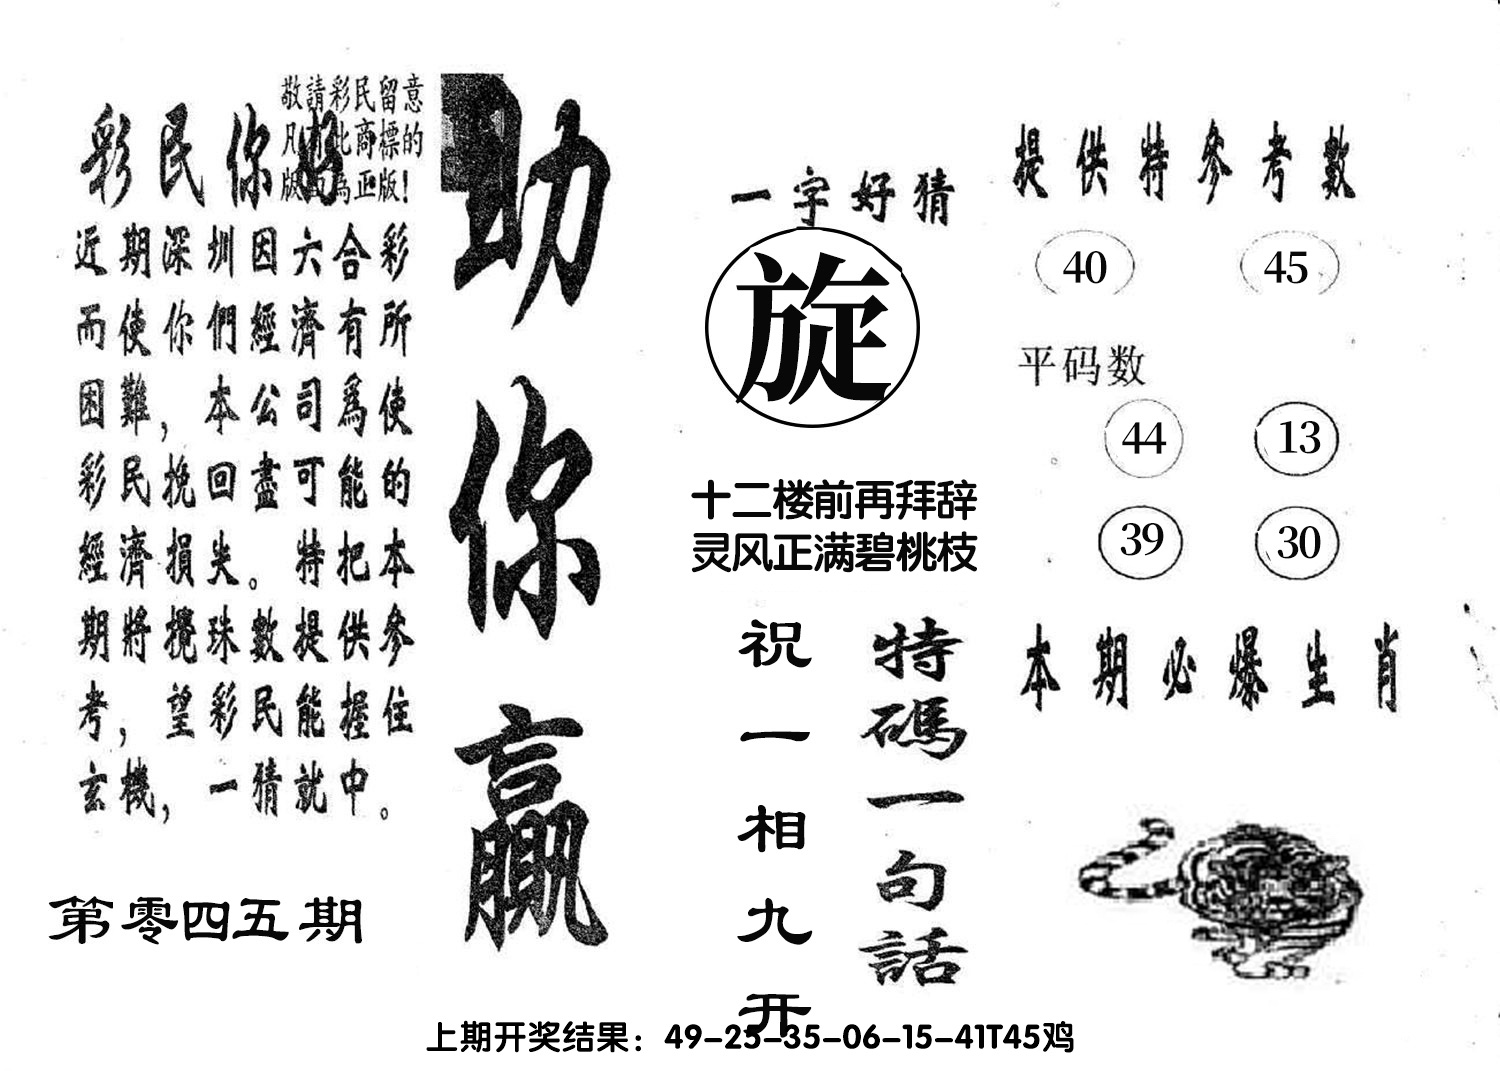 敬請彩民留意
凡有此商標的
版面為正版!
彩民你好
近期深圳因六合彩
而使你們經濟有所
困難，本公司爲使
彩民挽回盡可能的
經濟損失。特把本
期將攪珠數提供參
考，望彩民能握住
玄機，一猜就中。
第零四五期
助你贏
一字好猜
旋
十二楼前再拜辞
灵风正满碧桃枝
特碼一句話
祝一相九开
提供特參考數
40 45
平码数
44 13
39 30
本期必爆生肖
上期开奖结果：49-25-35-06-15-41T45鸡